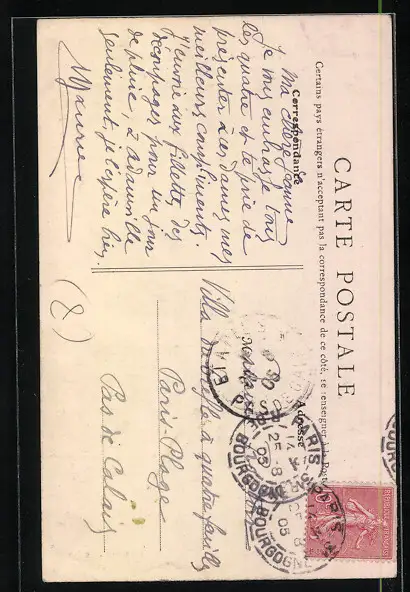 CARTE POSTALE
Certains pays étrangers n'acceptant pas la correspondance de ce côté, se renseigner à la Poste
Correspondance
Adresse
Ma chère Jeanne
Je vous embrasse tous
les quatre et te prie de
présenter à ces dames mes
meilleurs compliments.
J'envoie aux fillettes des
découpages pour un jour
de pluie, à
seulement, je l'espère bien.
Villa du trèfle à quatre feuilles
Paris-Plage
Pas de Calais
(8)
PARIS
25 - 8
05
BOURGOGNE
PARIS
25 - 8
05
BOURGOGNE
REPUBLIQUE FRANÇAISE
10